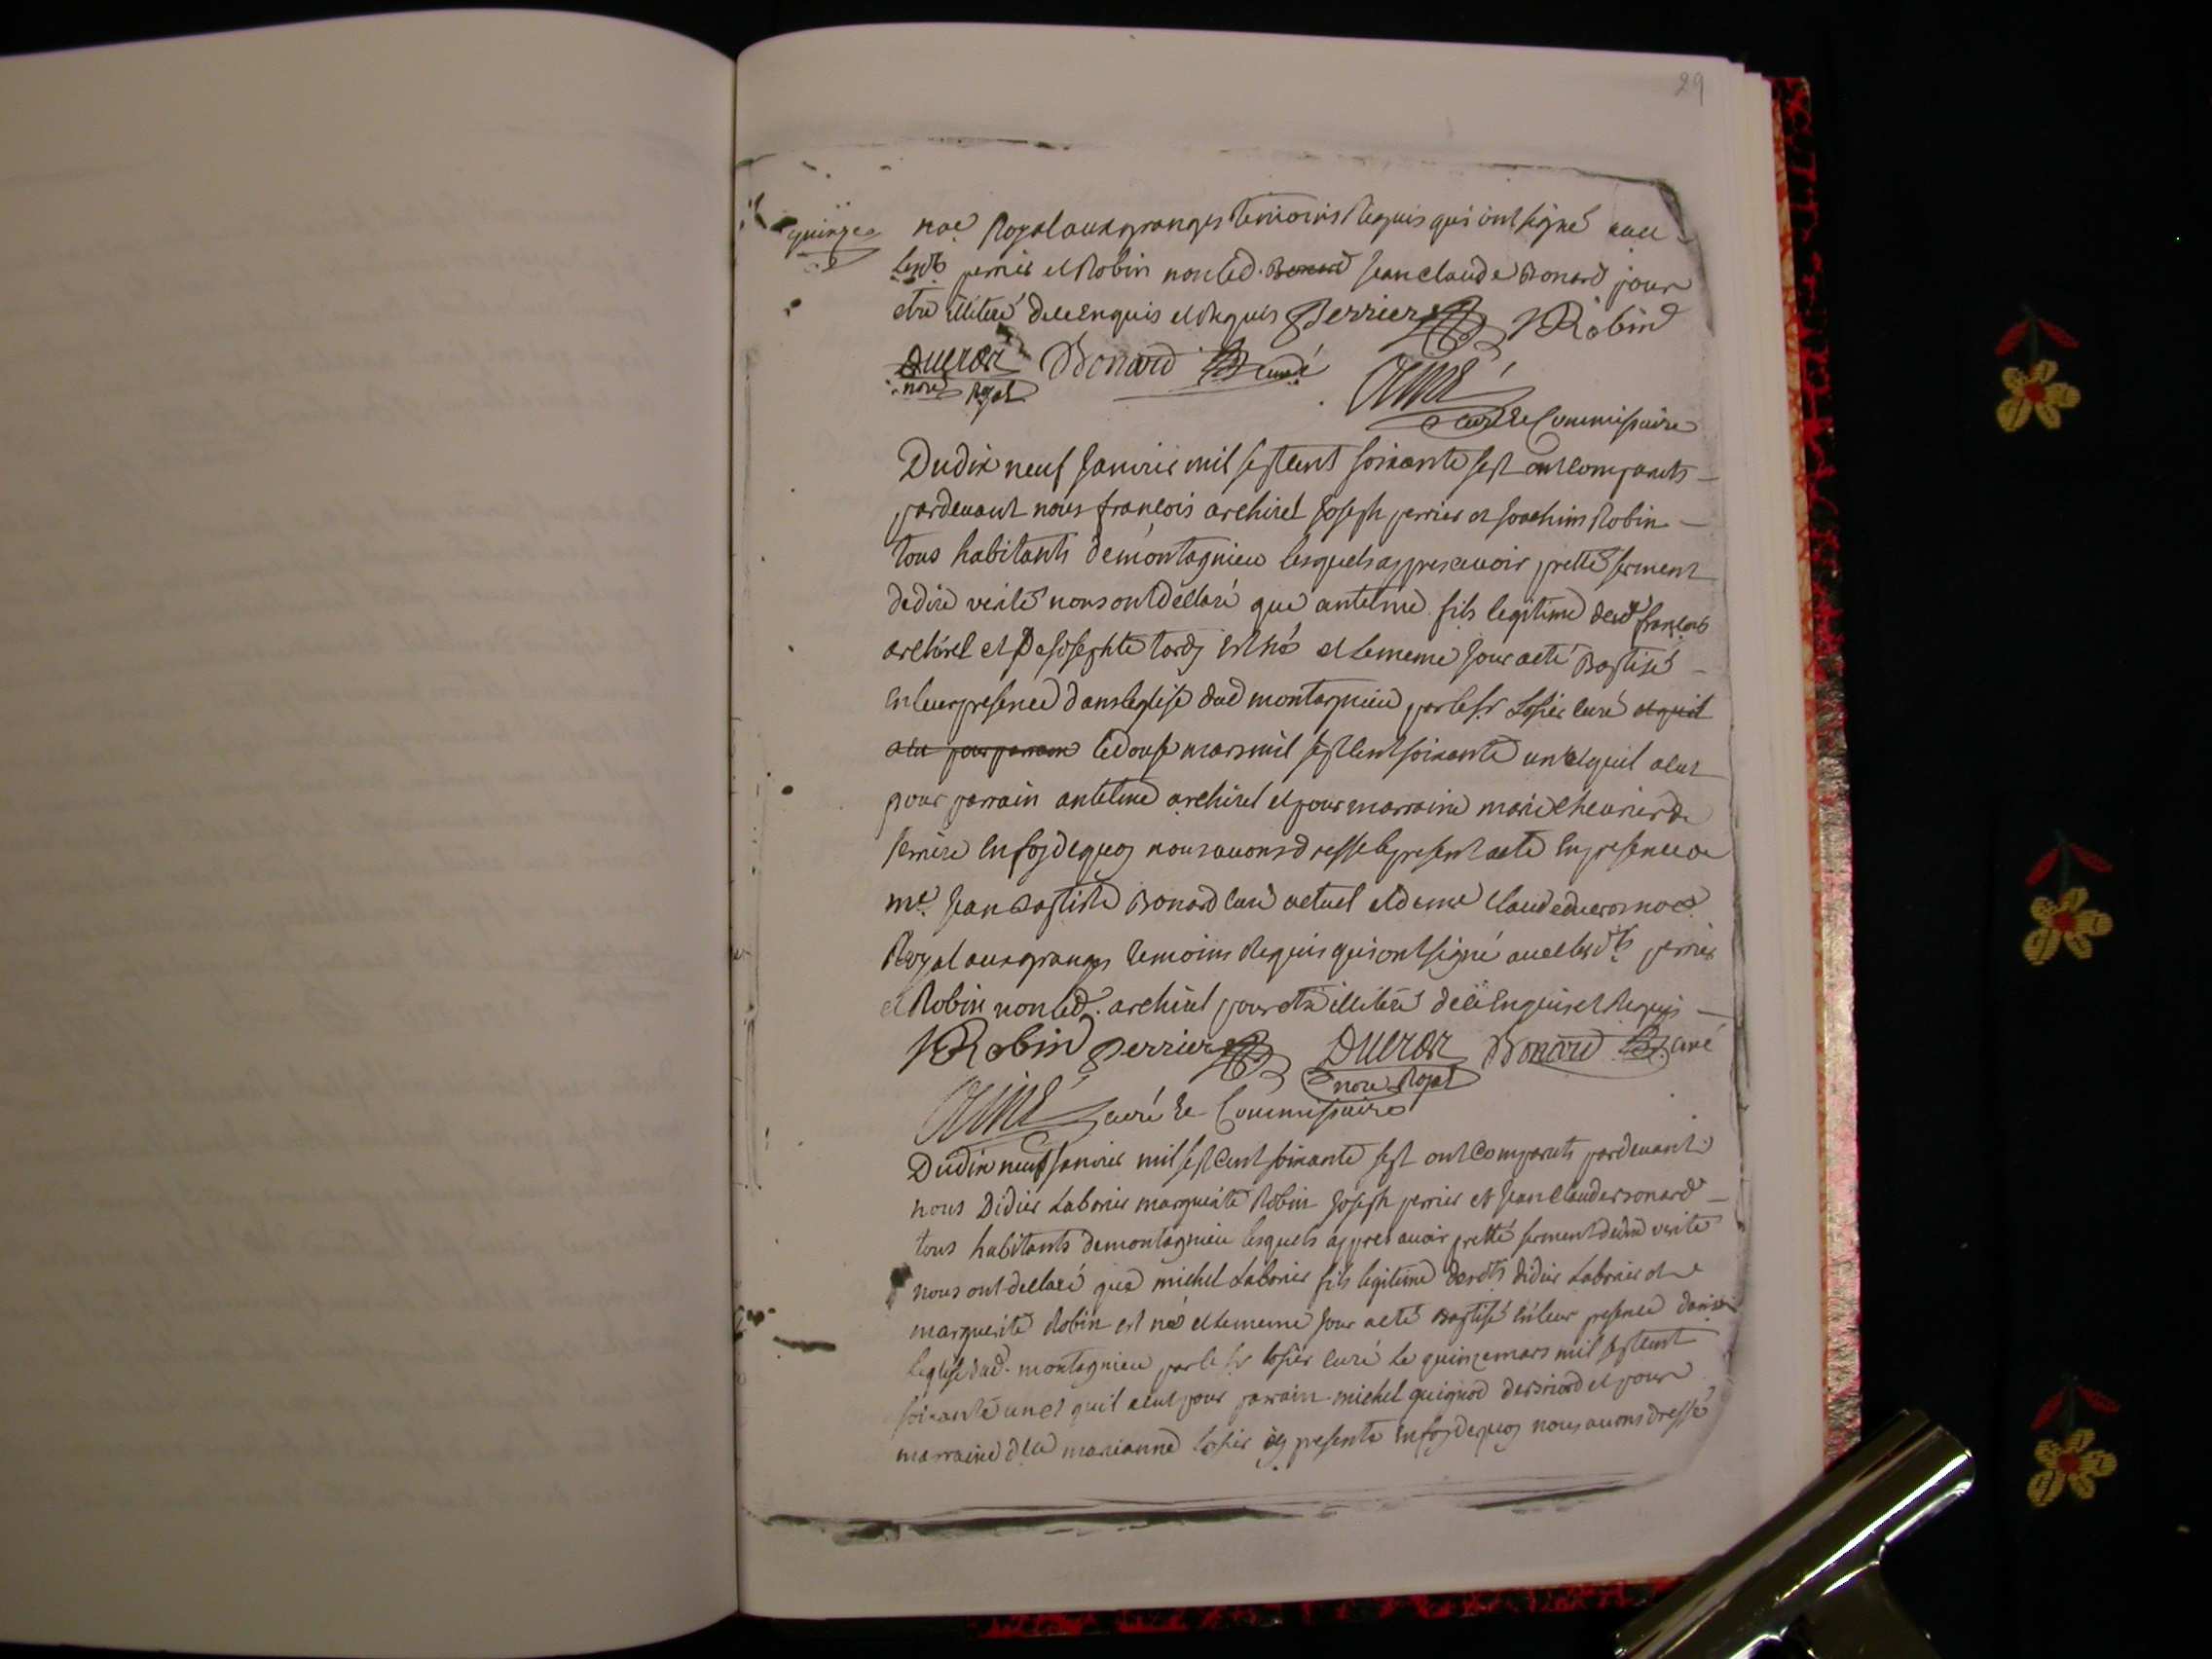 29
quinze
noe Royal aux granges temoins Requis qui ont signé avec
lesdts perrier et Robin non led. Bonard Jean claude Bonard pour
etre illiteré de ce enquis et Requis Perrier J Robin
Ducror Bonard curé
nore Royal Aimé
curé et Commissaire
Du dix neuf Janvier mil sept cent soixante sept ont comparuts
pardevant nous françois archirel Joseph perrier et Joachim Robin
tous habitants de montagnieu lesquels appres avoir pretté serment
de dire verité nous ont dellaré que antelme fils legitime dud françois
archirel et De Josephte tardy est né et le meme Jour a eté Baptisé
en leur presence dans leglise dud montagnieu par le Sr Losier curé et quil
a eu pour parrain le douse mars mil sept cent soixante un et quil a eut
pour parrain antelme archirel et pour marraine marie chevrier de
serriere en foy de quoy nous avons dressé le present acte en presence de
me. Jean Baptiste Bonard curé actuel et de me Claude ducror noe
Royal aux granges temoins Requis qui ont signé avec lesdts perrier
et Robin non led. archirel pour etre illiteré de ce Enquis et Requis
J Robin Perrier Ducror Bonard curé
nore Royal
Aimé curé et Commissaire
Du dix neuf Janvier mil sept Cent soixante sept ont Comparuts pardevant
nous Didier Laborier marguerite Robin Joseph perrier et Jean Claude Bonard
tous habitants de montagnieu lesquels appres avoir pretté serment de dire verité
nous ont dellaré que michel Laborier fils legitime desdts didier Laborier et
marguerite Robin est né et le meme Jour a eté Baptisé en leur presence dans
leglise dud. montagnieu par le Sr losier curé le quinze mars mil sept cent
soixante un et quil a eut pour parrain michel guignod de Briord et pour
marraine dlle marianne Losier icy presente en foy de quoy nous avons dressé